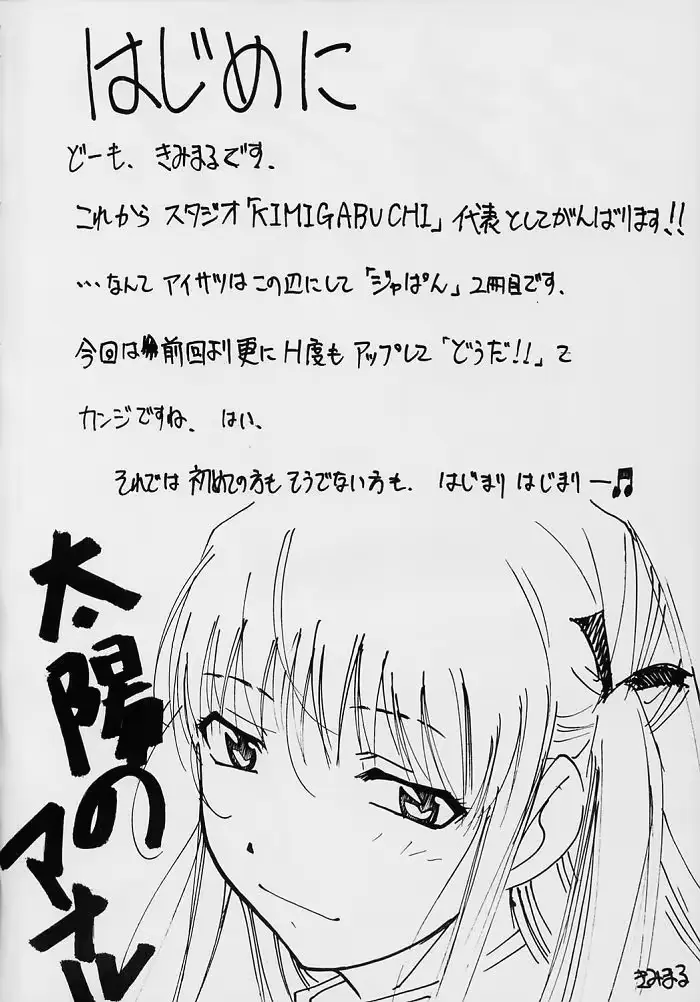 はじめに
どーも、きみまるです、
これから スタジオ「KIMIGABUCHI」代表としてがんばります!!
…なんて アイサツはこの辺にして「ジャぱん」2冊目です、
今回は前回より更にH度もアップして「どうだ!!」て
カンジですね、 はい、
それでは 初めての方もそうでない方も、 はじまり はじまりー♫
太陽の
マナル
きみまる